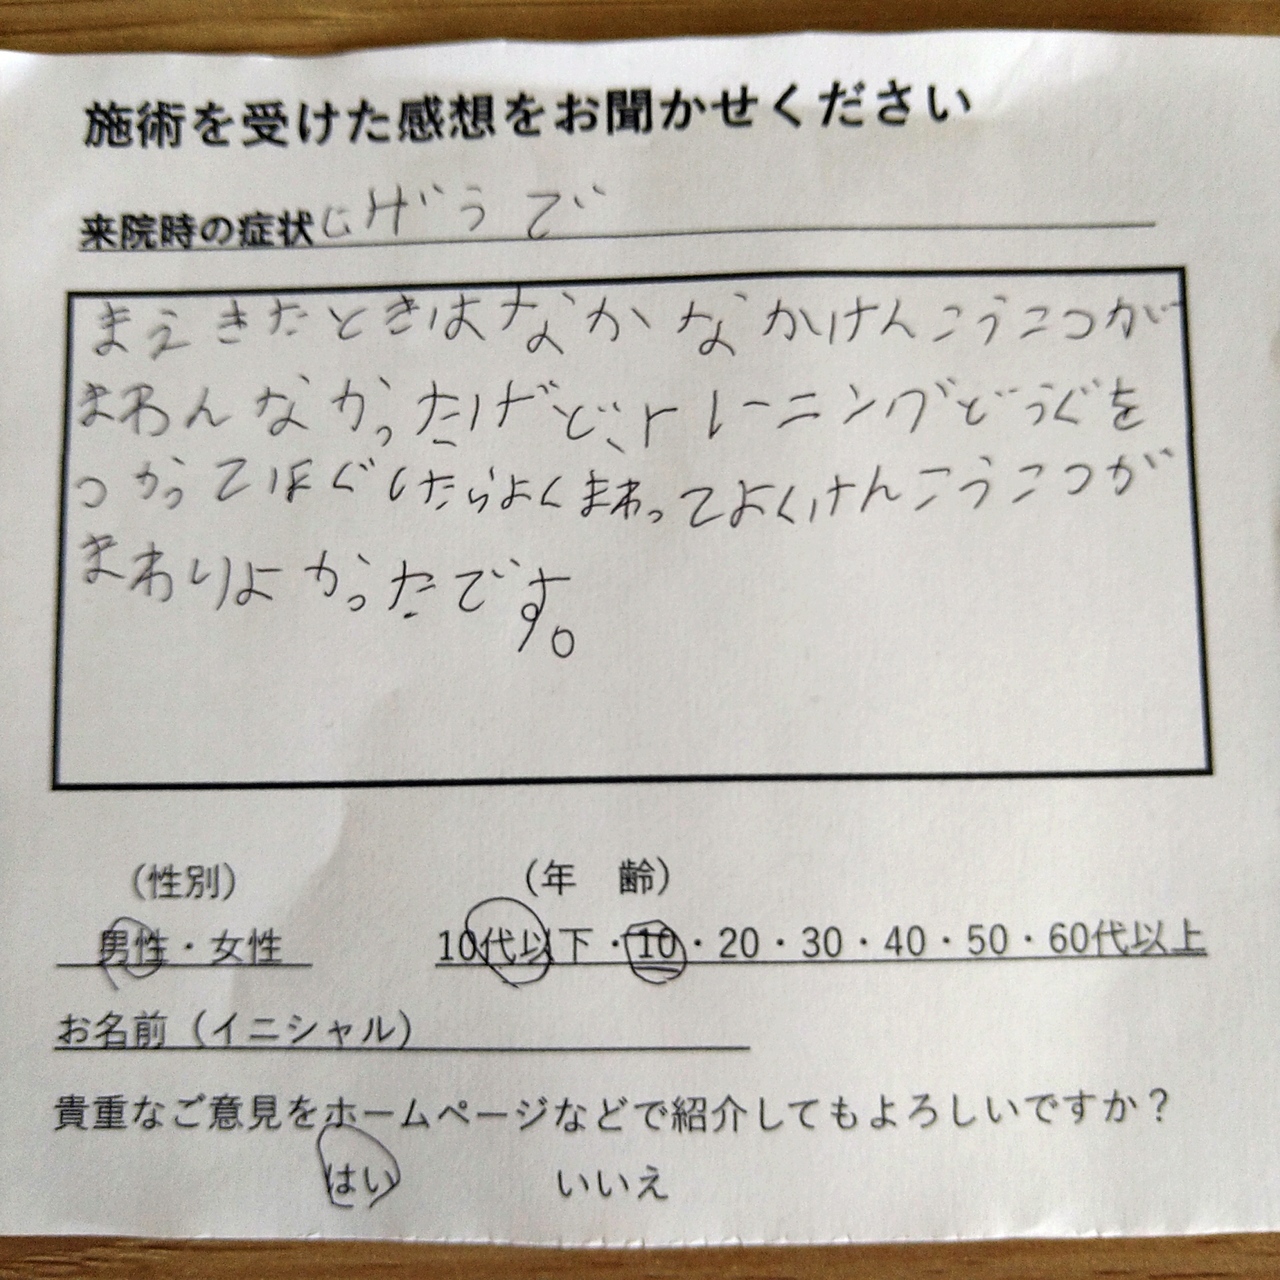 施術を受けた感想をお聞かせください
来院時の症状 ひげうで
まえきたときはなかなかけんこうこつが
まわんなかったけど、トレーニングどうぐを
つかってほぐしたらよくまわってよくけんこうこつが
まわりよかったです。
（性別） （年　齢）
男性・女性 10代以下・10・20・30・40・50・60代以上
お名前（イニシャル）
貴重なご意見をホームページなどで紹介してもよろしいですか？
はい いいえ